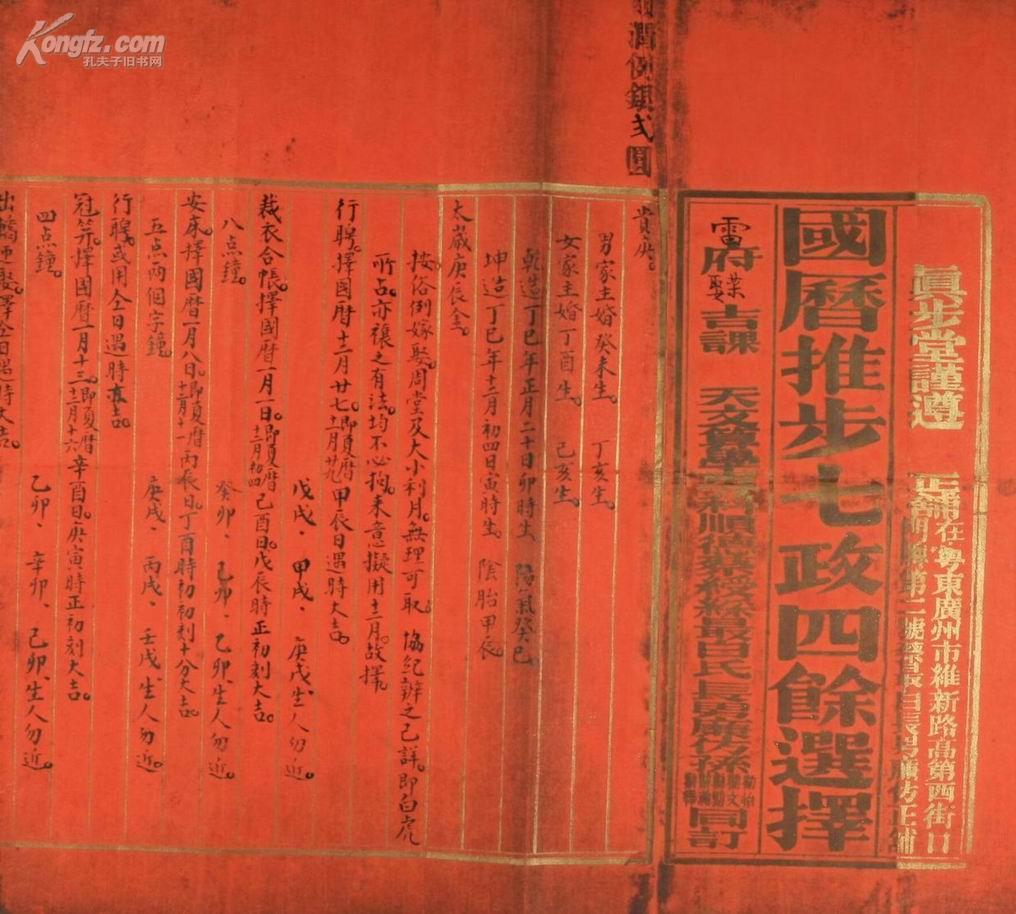 Kongfz.com
孔夫子旧书网
真步堂謹遵
正鋪在粵東廣州市維新路高第西街口
國曆推步七政四餘選擇
雷府
葉
娶
吉課
天文
最白氏長男廉仿孫
同訂
潤例銀弍圓
貴庚。
男家主婚癸未生。 丁亥生。
女家主婚丁酉生。 己亥生。
乾造丁巳年正月二十日卯時生 陽氣癸巳
坤造丁巳年十二月初四日寅時生。 陰胎甲辰
太歲庚辰金。
按俗例嫁娶周堂及大小利月。無理可取。協紀辦之已詳。即白虎
所占。亦禳之有法。均不必拘。來意擬用十二月。故擇
行聘。擇國曆十二月廿七。即夏曆十一月廿九甲辰日遇時大吉。
戊戌、甲戌、庚戌生人勿近。
裁衣合帳。擇國曆一月一日。即夏曆十二月初四己酉日。戊辰時正初刻大吉。
八点鐘。
癸卯、己卯、乙卯、生人勿近。
安床擇國曆一月八日。即夏曆十二月十一丙辰日。丁酉時初初刻十分大吉。
五点两個字鐘。
庚戌、丙戌、壬戌生人勿近
行聘。或用全日遇時亦吉。
冠笄。擇國曆一月十三。十二月十六辛酉日。庚寅時正初刻大吉。
四点鐘。
乙卯、辛卯、己卯、生人勿近。